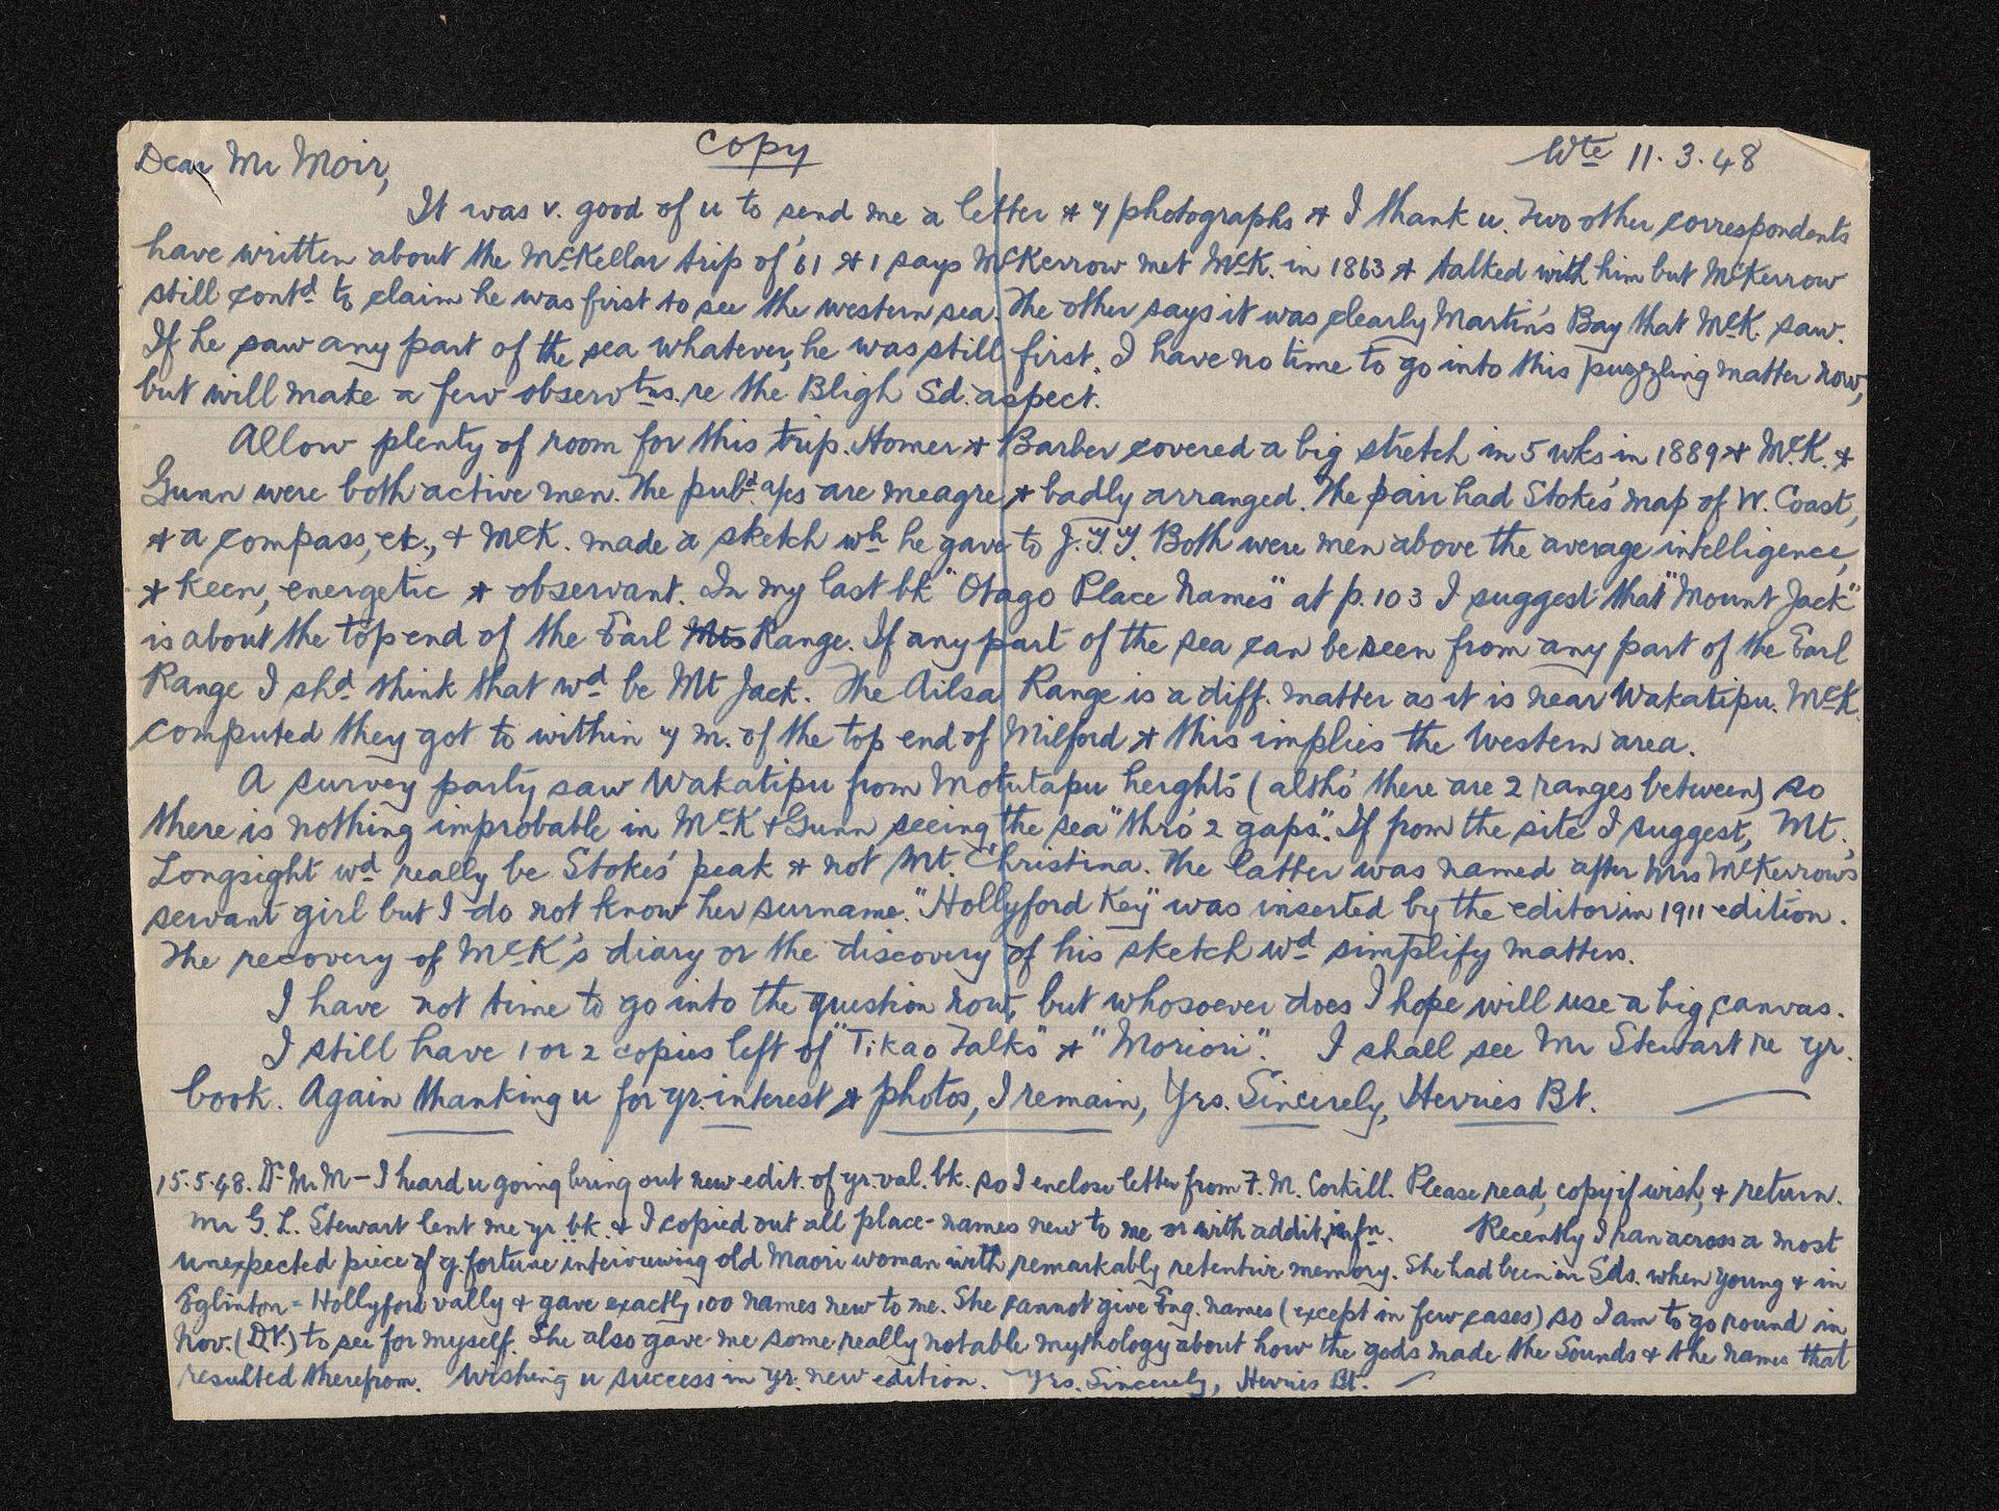 Copy
Dear Mr Moir, Wte 11.3.48
It was v. good of u to send me a letter & 4 photographs & I thank u. Two other correspondents
have written about the McKellar trip of '61 & 1 says McKerrow met McK. in 1863 & talked with him but McKerrow
still contd to claim he was first to see the western sea. The other says it was clearly Martin's Bay that McK. saw.
If he saw any part of the sea whatever, he was still first. I have no time to go into this puzzling matter now,
but will make a few observtns. re the Bligh Sd. aspect.
Allow plenty of room for this trip. Homer & Barber covered a big stretch in 5 wks in 1889 & McK. &
Gunn were both active men. The pubd a/cs are meagre & badly arranged. The pair had Stokes' map of W. Coast,
& a compass, etc., & McK. made a sketch wh he gave to J.T.T. Both were men above the average intelligence,
& keen, energetic & observant. In my last bk "Otago Place Names" at p.103 I suggest that "Mount Jack"
is about the top end of the Earl Mts Range. If any part of the sea can be seen from any part of the Earl
Range I shd think that wd be Mt Jack. The Ailsa Range is a diff. matter as it is near Wakatipu. McK.
computed they got to within 4 m. of the top end of Milford & this implies the Western area.
A survey party saw Wakatipu from Motutapu heights (altho' there are 2 ranges between) so
there is nothing improbable in McK & Gunn seeing the sea "thro' 2 gaps". If from the site I suggest, Mt.
Longsight wd really be Stokes' peak & not Mt. Christina. The latter was named after Mrs McKerrow's
servant girl but I do not know her surname. "Hollyford Key" was inserted by the editor in 1911 edition.
The recovery of McK's diary or the discovery of his sketch wd simplify matters.
I have not time to go into the question now, but whosoever does I hope will use a big canvas.
I still have 1 or 2 copies left of "Tikao Talks" & "Moriori". I shall see Mr Stewart re yr.
book. Again thanking u for yr. interest & photos, I remain, Yrs. Sincerely, Herries Bt.
15.5.48. Dr Mr M — I heard u going bring out new edit. of yr. val. bk. so I enclose letter from F. M. Corkill. Please read, copy if wish, & return.
Mr G. L. Stewart lent me yr bk. & I copied out all place-names new to me or with addit. infn. Recently I ran across a most
unexpected piece of g. fortune interviewing old Maori woman with remarkably retentive memory. She had been in Sds. when young & in
Eglinton - Hollyford vally & gave exactly 100 names new to me. She cannot give Eng. names (except in few cases) so I am to go round in
Nov. (D.V.) to see for myself. She also gave me some really notable mythology about how the gods made the Sounds & the names that
resulted therefrom. Wishing u success in yr. new edition. Yrs. Sincerely, Herries Bt.